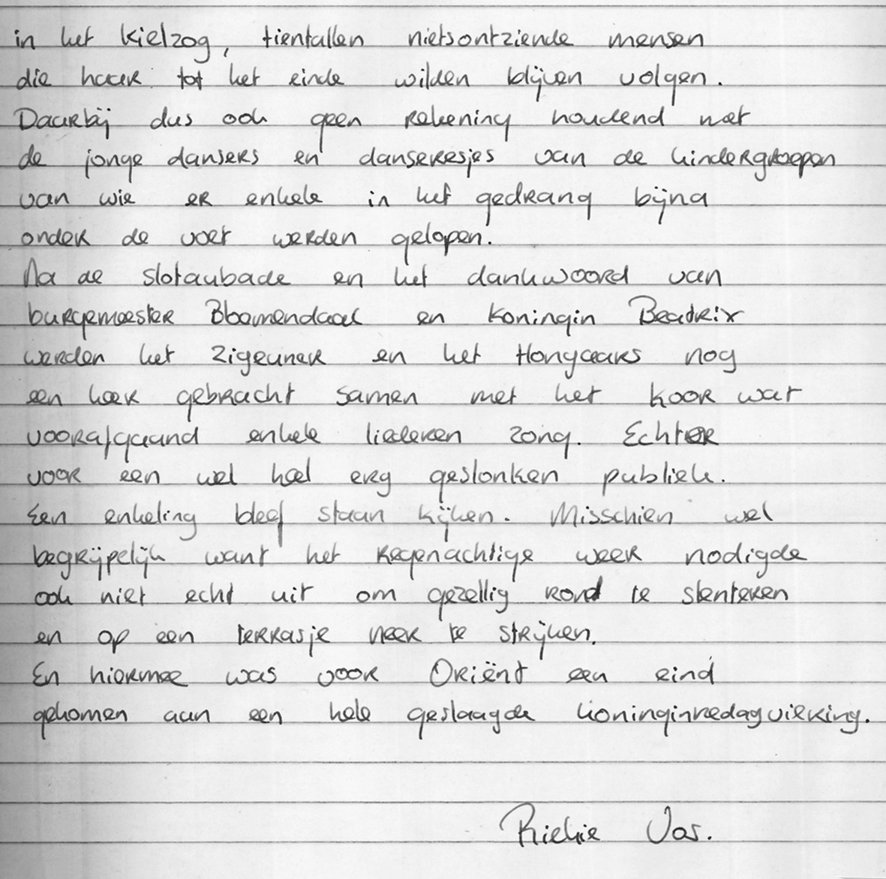 in het kielzog, tientallen nietsontziende mensen
die haar tot het einde wilden blijven volgen.
Daarbij dus ook geen rekening houdend met
de jonge dansers en danseresjes van de kindergroepen
van wie er enkele in het gedrang bijna
onder de voet werden gelopen.
Na de slotaubade en het dankwoord van
burgemeester Bloemendaal en Koningin Beatrix
werden het Zigeuner en het Hongaars nog
een keer gebracht samen met het koor wat
voorafgaand enkele liederen zong. Echter
voor een wel heel erg geslonken publiek.
Een enkeling bleef staan kijken. Misschien wel
begrijpelijk want het regenachtige weer nodigde
ook niet echt uit om gezellig rond te slenteren
en op een terrasje neer te strijken.
En hiermee was voor Oriënt een eind
gekomen aan een hele geslaagde koninginnedagviering.
Riekie Vos.